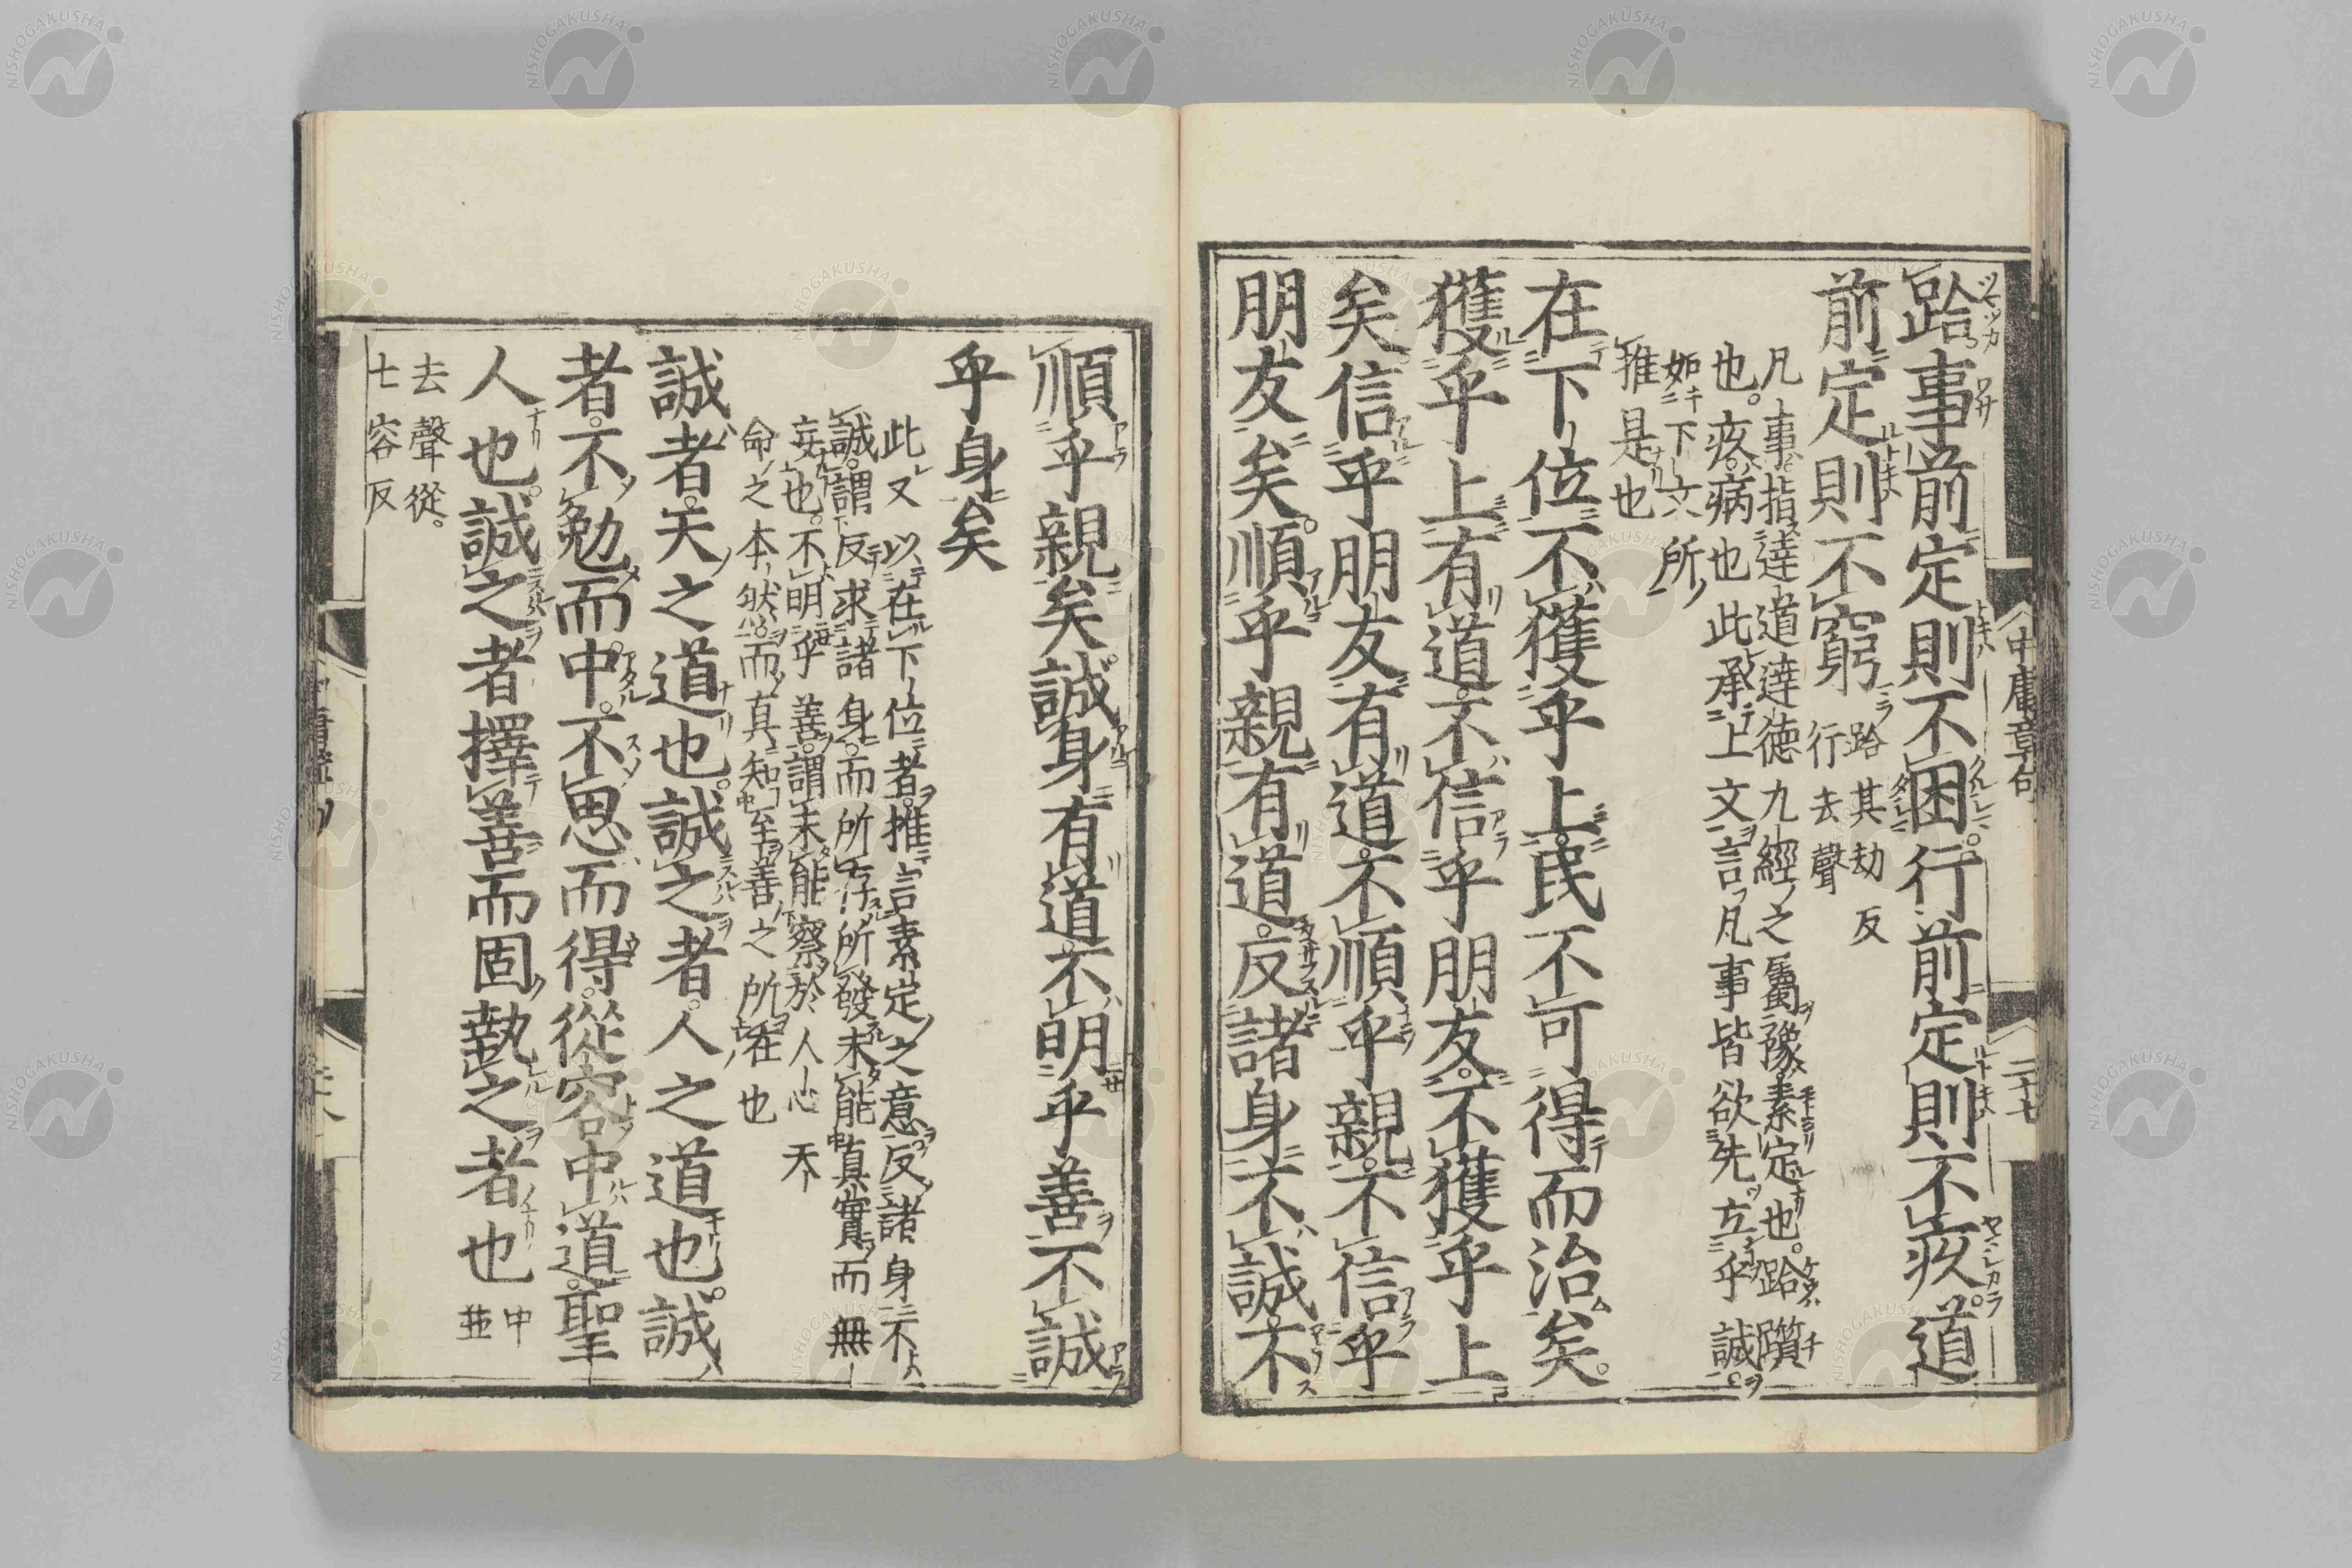 跲事前定則不困行前定則不疚道
前定則不窮
跲其劫反
行去聲
凡事指達道達德九經之屬豫素定也跲躓
也疚病也此承上文言凡事皆欲先立乎誠
如下文所
推是也
在下位不獲乎上民不可得而治矣
獲乎上有道不信乎朋友不獲乎上
矣信乎朋友有道不順乎親不信乎
朋友矣順乎親有道反諸身不誠不
中庸章句
二十七
順乎親矣誠身有道不明乎善不誠
乎身矣
此又以在下位者推言素定之意反諸身不
誠謂反求諸身而所存所發未能真實而無
妄也不明乎善謂未能察於人心天
命之本然而真知至善之所在也
誠者天之道也誠之者人之道也誠
者不勉而中不思而得從容中道聖
人也誠之者擇善而固執之者也
中
並
去聲從
七容反
NISHOGAKUSHA